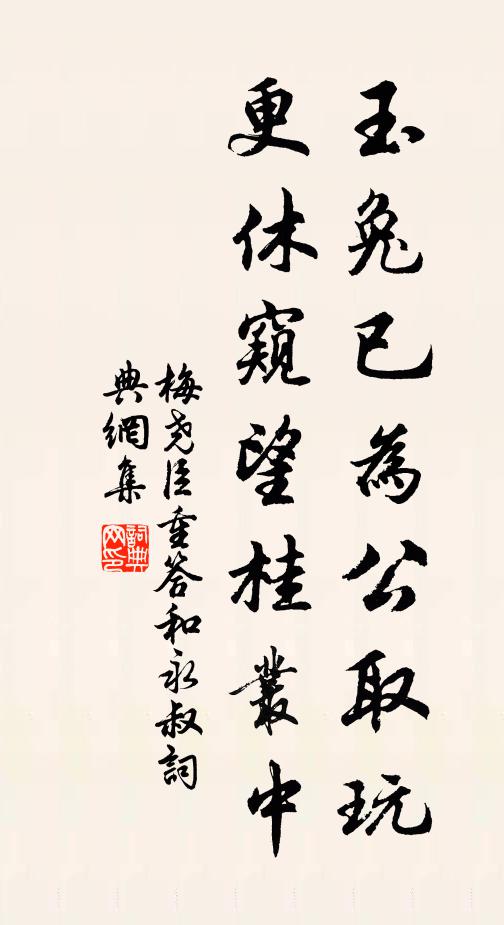 玉兔已為公取玩
更休窺望桂叢中
梅堯臣重答和永叔詞
典網集
詞典
网印